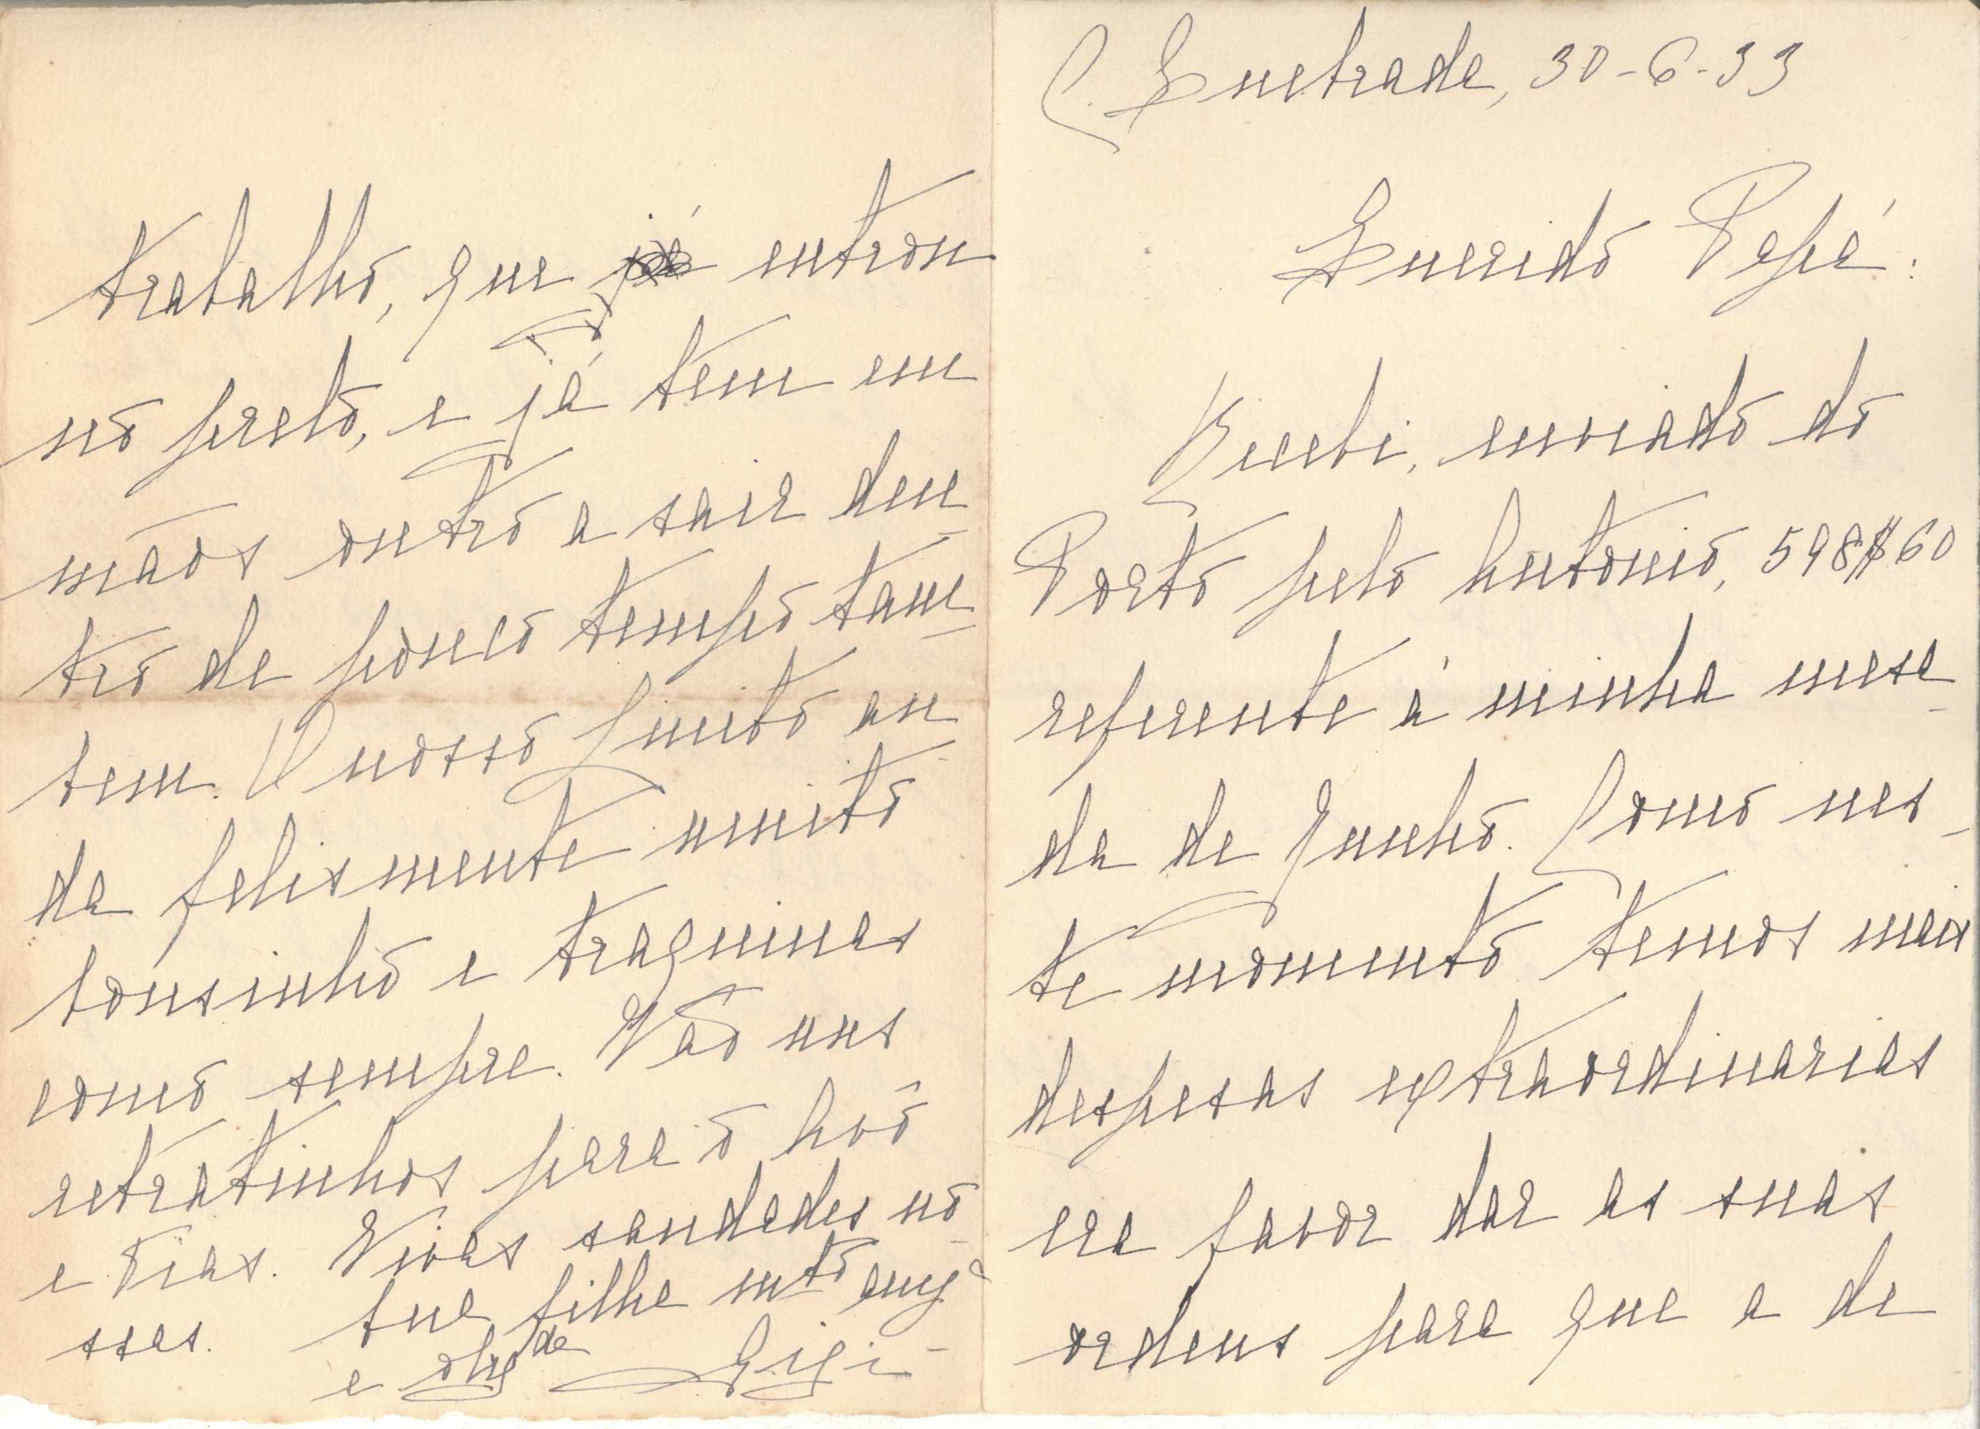 C. Quebrada, 30-6-33
Querido Papá:
Recebi, enviado do
Porto pelo Antonio, 598$60
referente á minha mesa-
da de Junho. Como nes-
te momento temos mais
despesas extraordinarias
era favor dar as suas
ordens para que a de
trabalho, que já entrou
no prelo, e já tem em
mãos outro a sair den-
tro de pouco tempo tam-
bem. O nosso an-
da felismente muito
bonsinho e traquinas
como sempre. Vão uns
retratinhos para o Avô
e Tias. Vivas saudades no-
ssas. tua filha mto amga
e obgda Gigi